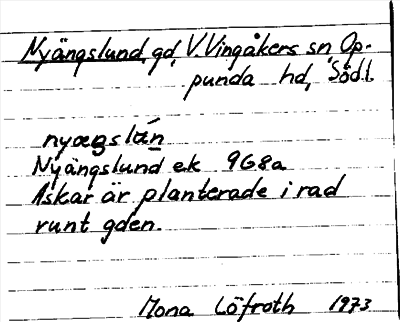 Nyängslund, gd, V. Vingåkers sn Op-
punda hd, Södl.
Nyängslund ek 9G8a
Askar är planterade i rad
runt gden.
Mona Löfroth 1973